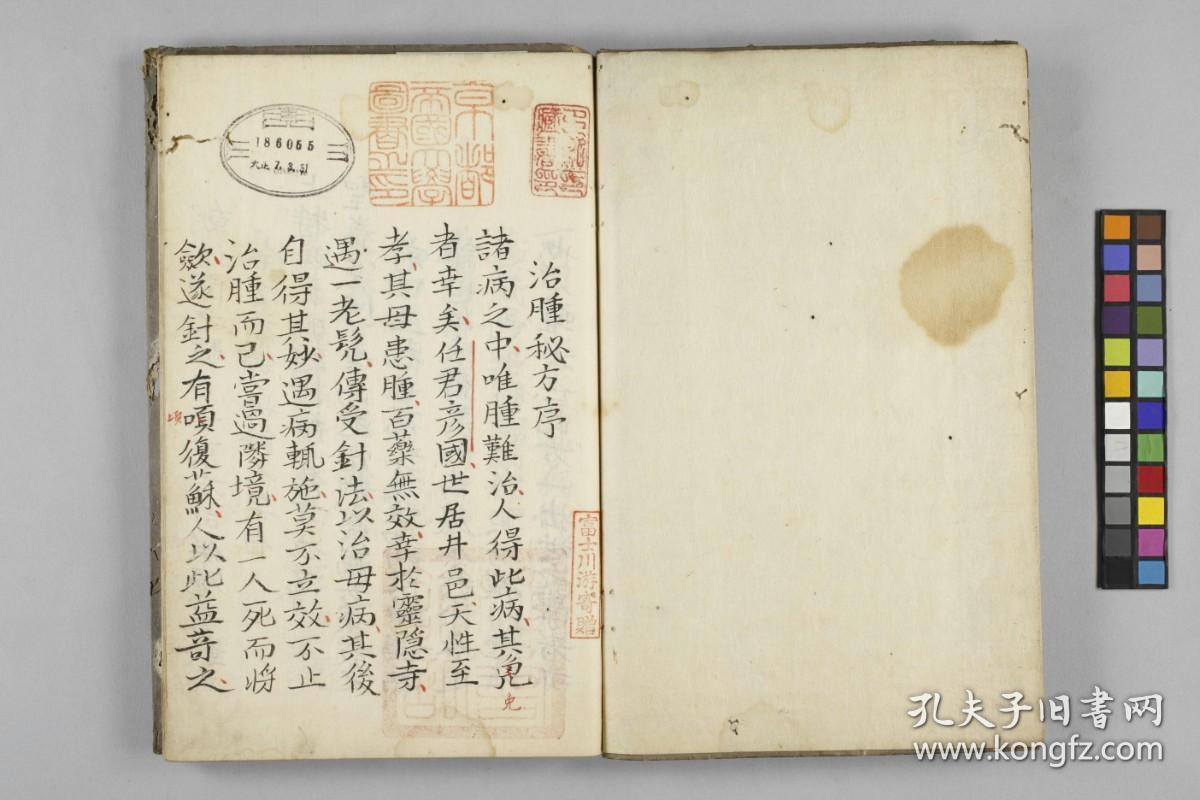 治腫秘方序
諸病之中唯腫難治人得此病其免
免
者幸矣任君彦國世居井邑天性至
孝其母患腫百藥無效幸於靈隠寺
遇一老髡傳受針法以治母病其後
自得其妙遇病輒施莫不立效不止
治腫而已嘗過隣境有一人死而將
歛遂針之有頃復蘇人以此益竒之
京都
帝國大學
圖書之印
富士川游寄贈
186055
大正 7.3.31
孔夫子旧书网
www.kongfz.com